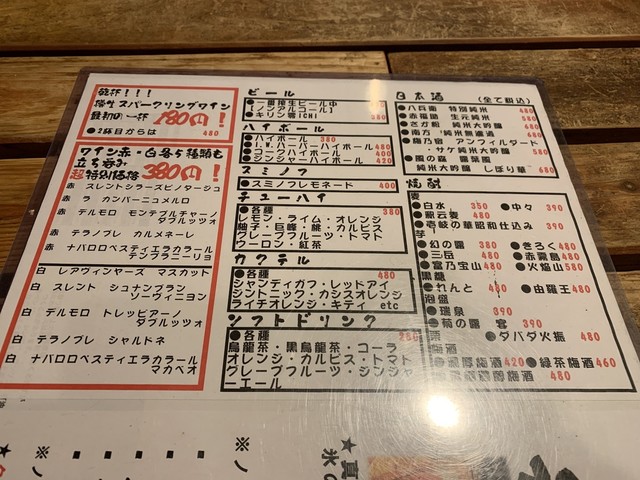 乾杯!!!
樽生スパークリングワイン
最初の一杯 180円!
●2杯目からは 480
ワイン赤・白各5種類も
立ち呑み
超特別価格 380円!
赤 スレントシラーズピノタージュ
赤 ラ カンパーニュメルロ
赤 デルモロ モンテプルチャーノ
ダブルッツォ
赤 テラノブレ カルメネーレ
赤 ナバロロペスティエラカラール
テンプラニーリョ
白 レアヴィンヤーズ マスカット
白 スレント シュナンブラン
ソーヴィニヨン
白 デルモロ トレッビアーノ
ダブルッツォ
白 テラノブレ シャルドネ
白 ナバロロペスティエラカラール
マカベオ
ビール
●一番搾生ビール中
(ノンアルコール)
●キリン零ICHI 380
ハイボール
●ハイボール 380
●I.W.ハーパーハイボール 480
●コークハイボール 400
●ジンジャーハイボール 420
スミノフ
●スミノフレモネード 400
チューハイ
●各種 380
レモン・ライム・オレンジ
柚子・巨峰・桃・カルピス
グレープフルーツ・トマト
ウーロン・紅茶
カクテル
●各種 480
シャンディガフ・レッドアイ
ジントニック・カシスオレンジ
ライチオレンジ・キティ etc
ソフトドリンク
●各種 280
烏龍茶・黒烏龍茶・コーラ
オレンジ・カルピス・トマト
グレープフルーツ・ジンジャ
ーエール
日本酒 (全て税込)
●八兵衛 特別純米 480
●赤福鶴 生酛純米 580
●さが般 純米大吟醸
●南方 純米無濾過 680
●梅乃宿 アンフィルタード
・サケ純米大吟醸 580
●風の森 露葉風
純米大吟醸 しぼり華 680
焼酎
麦
●白水 350
●中々 390
●銀云麦 480
●壱岐の華昭和仕込み 390
芋
●幻の露 380
●きろく 480
●三岳 480
●赤霧島 480
●富乃宝山 480
●火焔山 580
黒糖
●れんと 480
●由羅王 480
泡盛
●瑞泉 390
●菊の露 390
栗
●ダバダ火振 480
梅酒
420
●緑茶梅酒 460
梅酒 480